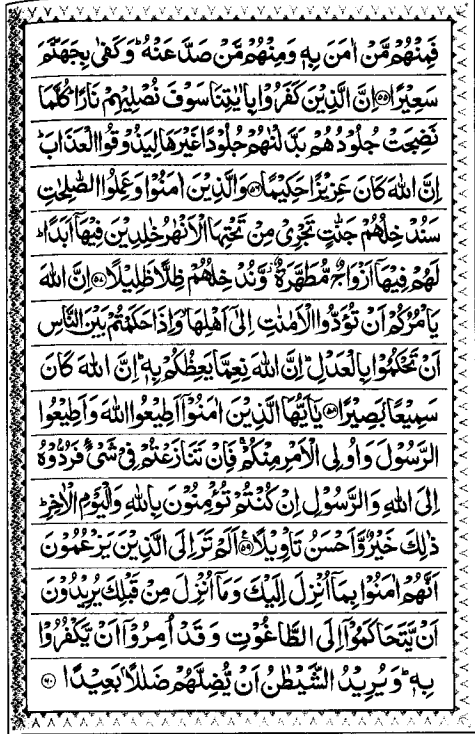 فَمِنْهُمْ مَّنْ اٰمَنَ بِهٖ وَمِنْهُمْ مَّنْ صَدَّ عَنْهُ ؕ وَكَفٰى بِجَهَنَّمَ
سَعِيْرًا ﴿۵۵﴾ اِنَّ الَّذِيْنَ كَفَرُوْا بِاٰيٰتِنَا سَوْفَ نُصْلِيْهِمْ نَارًا ؕ كُلَّمَا
نَضِجَتْ جُلُوْدُهُمْ بَدَّلْنٰهُمْ جُلُوْدًا غَيْرَهَا لِيَذُوْقُوا الْعَذَابَ ؕ
اِنَّ اللّٰهَ كَانَ عَزِيْزًا حَكِيْمًا ﴿۵۶﴾ وَالَّذِيْنَ اٰمَنُوْا وَعَمِلُوا الصّٰلِحٰتِ
سَنُدْخِلُهُمْ جَنّٰتٍ تَجْرِيْ مِنْ تَحْتِهَا الْاَنْهٰرُ خٰلِدِيْنَ فِيْهَاۤ اَبَدًا ؕ
لَهُمْ فِيْهَاۤ اَزْوَاجٌ مُّطَهَّرَةٌ ؗ وَّنُدْخِلُهُمْ ظِلًّا ظَلِيْلًا ﴿۵۷﴾ اِنَّ اللّٰهَ
يَاْمُرُكُمْ اَنْ تُؤَدُّوا الْاَمٰنٰتِ اِلٰٓى اَهْلِهَا ۙ وَاِذَا حَكَمْتُمْ بَيْنَ النَّاسِ
اَنْ تَحْكُمُوْا بِالْعَدْلِ ؕ اِنَّ اللّٰهَ نِعِمَّا يَعِظُكُمْ بِهٖ ؕ اِنَّ اللّٰهَ كَانَ
سَمِيْعًۢا بَصِيْرًا ﴿۵۸﴾ يٰۤاَيُّهَا الَّذِيْنَ اٰمَنُوْۤا اَطِيْعُوا اللّٰهَ وَاَطِيْعُوا
الرَّسُوْلَ وَاُولِى الْاَمْرِ مِنْكُمْ ۚ فَاِنْ تَنَازَعْتُمْ فِيْ شَيْءٍ فَرُدُّوْهُ
اِلَى اللّٰهِ وَالرَّسُوْلِ اِنْ كُنْتُمْ تُؤْمِنُوْنَ بِاللّٰهِ وَالْيَوْمِ الْاٰخِرِ ؕ
ذٰلِكَ خَيْرٌ وَّاَحْسَنُ تَاْوِيْلًا ﴿۵۹﴾ اَلَمْ تَرَ اِلَى الَّذِيْنَ يَزْعُمُوْنَ
اَنَّهُمْ اٰمَنُوْا بِمَاۤ اُنْزِلَ اِلَيْكَ وَمَاۤ اُنْزِلَ مِنْ قَبْلِكَ يُرِيْدُوْنَ
اَنْ يَّتَحَاكَمُوْۤا اِلَى الطَّاغُوْتِ وَقَدْ اُمِرُوْۤا اَنْ يَّكْفُرُوْا
بِهٖ ؕ وَيُرِيْدُ الشَّيْطٰنُ اَنْ يُّضِلَّهُمْ ضَلٰلًۢا بَعِيْدًا ﴿۶۰﴾